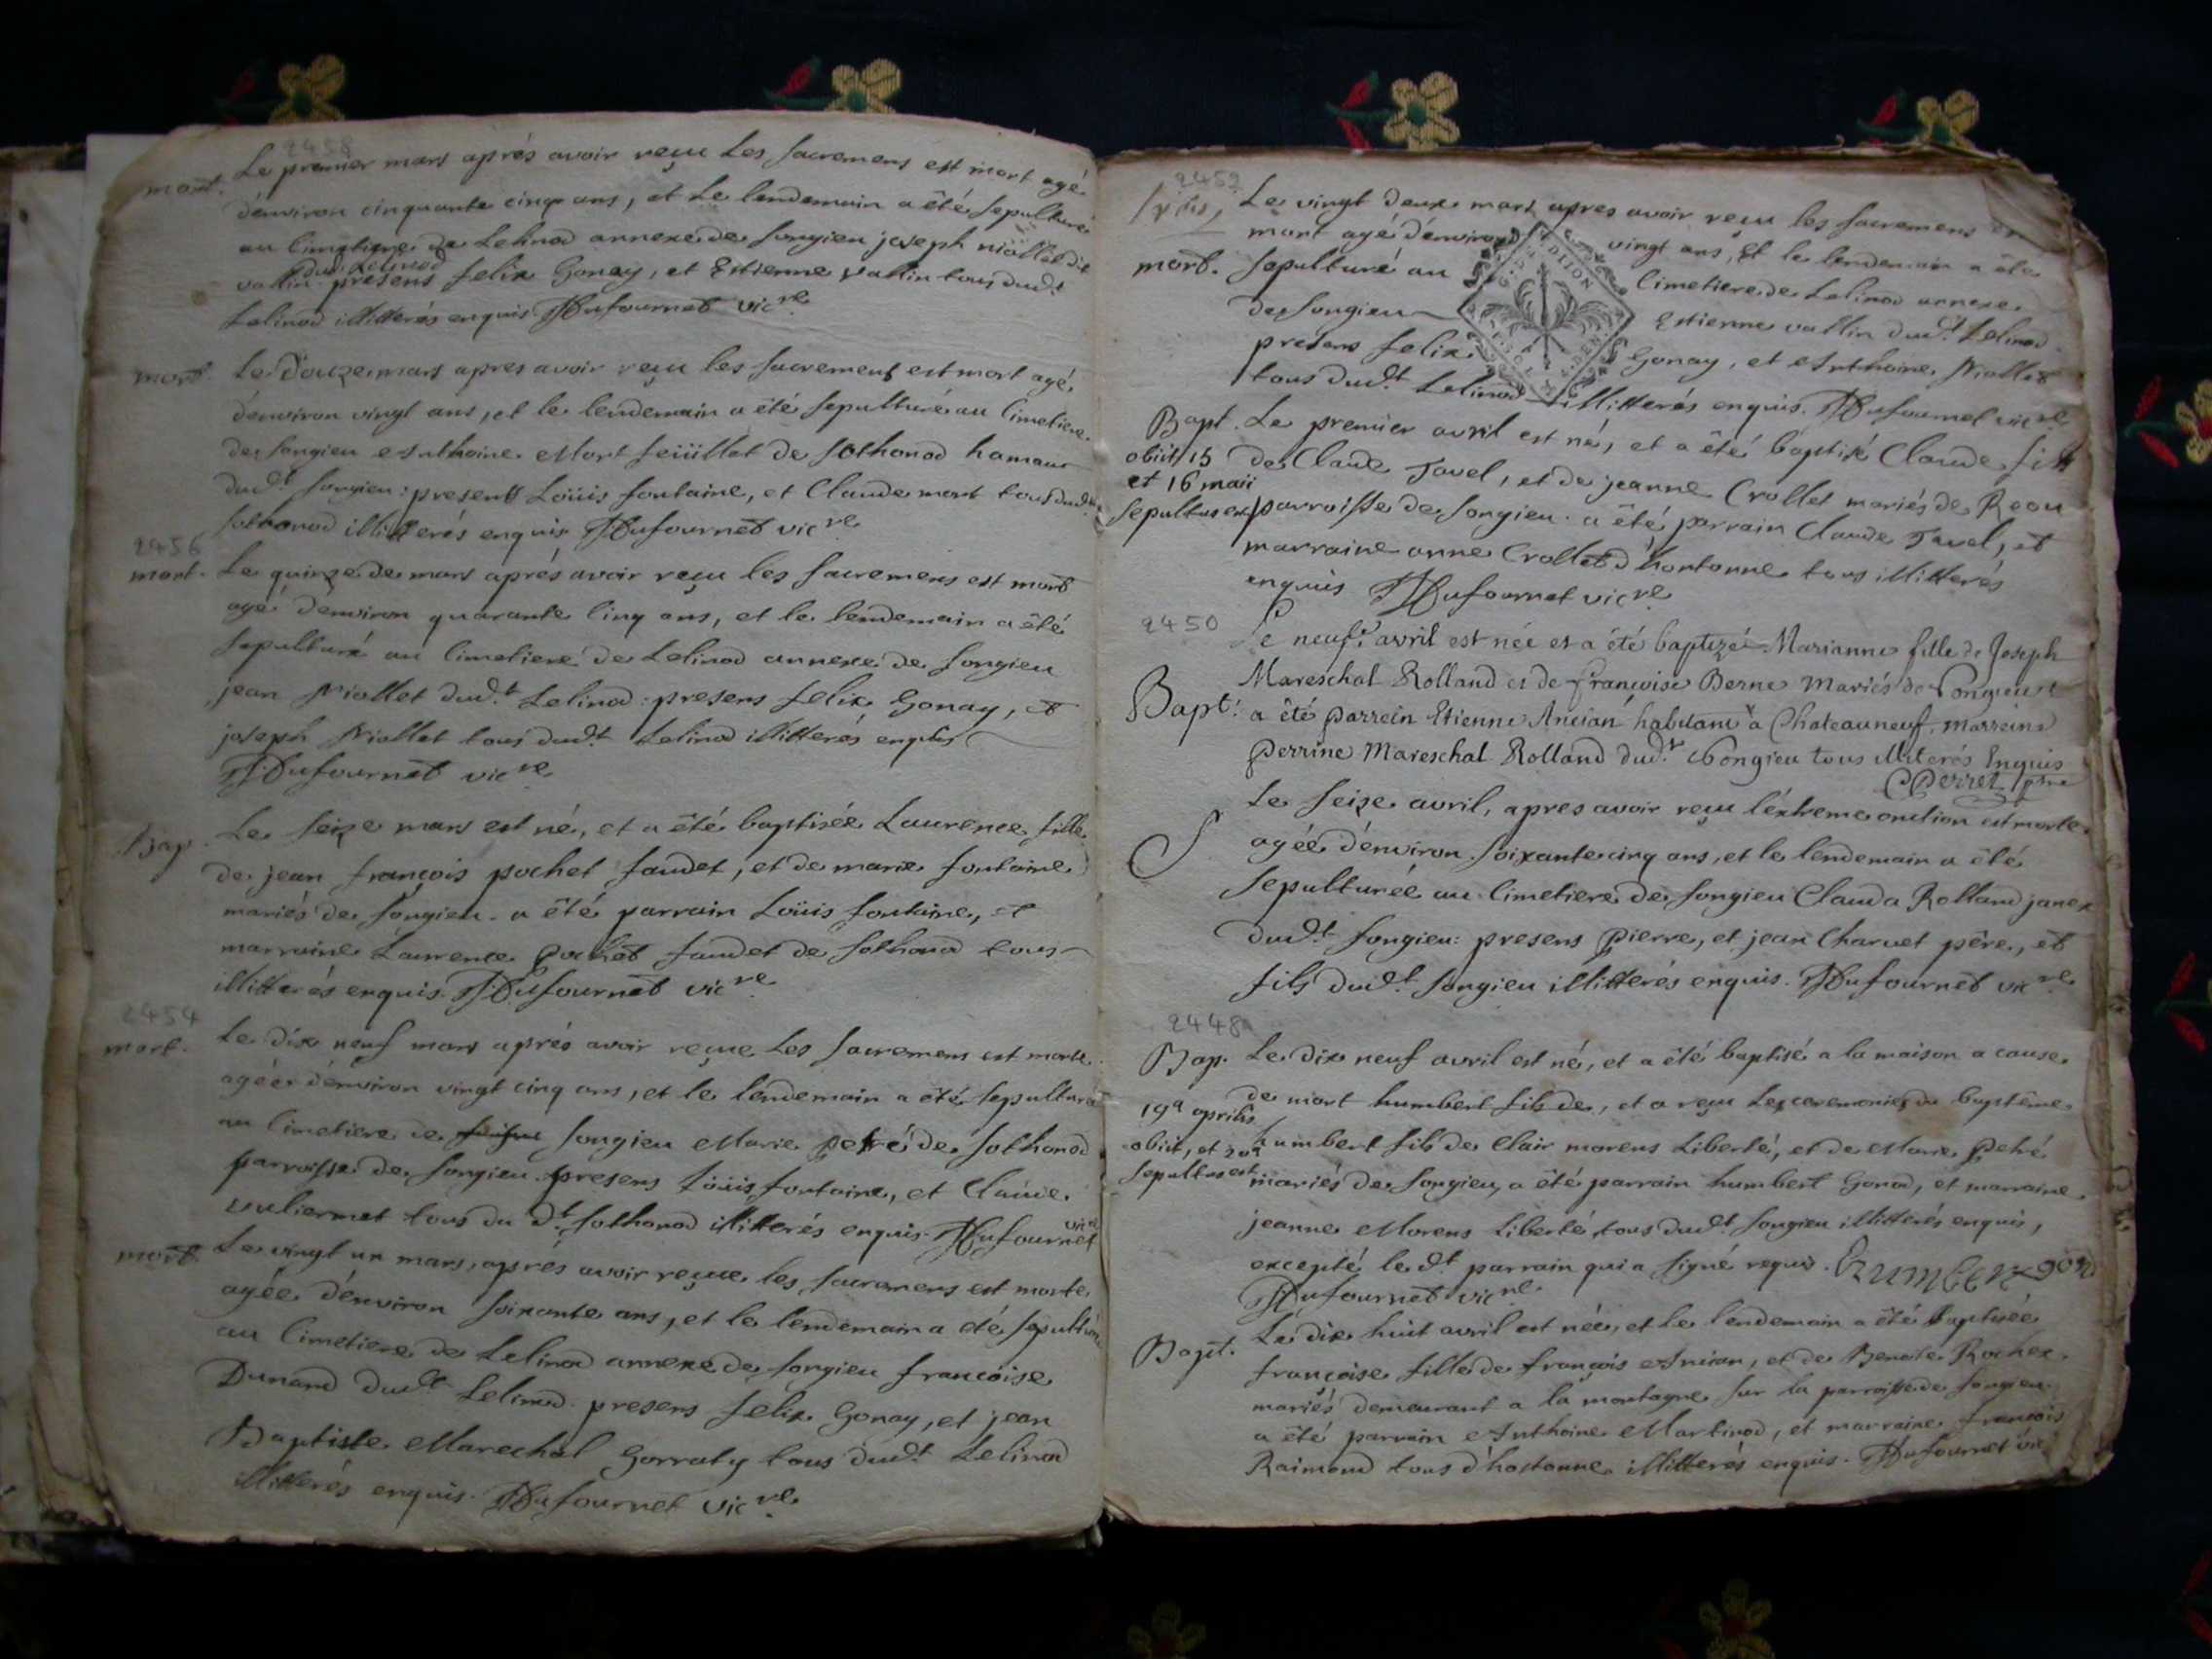 2458
mort. Le premier mars aprés avoir reçu Les sacremens est mort agé
d'environ cinquante cinq ans, et Le lendemain a été sepulturé
au Cimetiere de Lelinod annexe de songieu joseph niollet dit
dud. Lelinod
vallin presens felix Gonay, et Estienne vallin tous dud.t
Lelinod illitterés enquis Dufournet vic.re
mort. Le douze mars apres avoir reçu les sacremens est mort agé
d'environ vingt ans, et le lendemain a été sepulturé au Cimetiere
de songieu Anthoine Mort feüillet de sothonod hameau
dud.t songieu: presents Loüis fontaine, et Claude mort tous dud.
sothonod illitterés enquis Dufournet vic.re
2456
mort. Le quinze de mars aprés avoir reçu les sacremens est mort
agé d'environ quarante cinq ans, et le lendemain a été
sepulturé au Cimetiere de Lelinod annexe de songieu
jean Niollet dud.t Lelinod: presens felix Gonay, et
joseph Niollet tous dud.t Lelinod illitterés enquis
Dufournet vic.re
Bap. Le seize mars est né, et a été baptisée Laurence fille
de jean françois pochet faudet, et de marie fontaine
mariés de songieu. a été parrain Loüis fontaine, et
marraine Laurence pochet faudet de sothonod tous
illitterés enquis. Dufournet vic.re
2454
mort. Le dix neuf mars aprés avoir reçue Les sacremens est morte
agée d'environ vingt cinq ans, et le lendemain a été sepulturé
au Cimetiere de songieu Marie petré de sothonod
parroisse de songieu. presens Loüis fontaine, et Claude
vuliermet tous du d.t sothonod illitterés enquis. Dufournet vic.re
mort. Le vingt un mars, aprés avoir reçue les sacremens est morte
agée d'environ soixante ans, et le lendemain a été sepulturé
au Cimetiere de Lelinod annexe de songieu francoise
Dunand dud.t Lelinod. presens felix Gonay, et jean
Baptiste Marechal Gorraty tous dud.t Lelinod
illitterés enquis. Dufournet vic.re
2452
Le vingt deux mars apres avoir reçu les sacremens
mort agé d'environ vingt ans, et le lendemain a été
mort. sepulturé au Cimetiere de Lelinod annexe
de songieu Estienne vallin dud.t Lelinod
presens felix Gonay, et Anthoine Niollet
tous dud.t Lelinod illitterés enquis. Dufournet vic.re
G. DE DIJON
Bapt. Le premier avril est né, et a été baptisé Claude fils
obiit 15 de Claude Tavel, et de jeanne Crollet mariés de Reou
et 16 maii
sepultus est parroisse de songieu. a été parrain Claude Tavel, et
marraine anne Crollet d'hontonne tous illitterés
enquis Dufournet vic.re
2450
Le neuf.e avril est née et a été baptizé Marianne fille de Joseph
Mareschal Rolland et de françoise Berne Mariés de Songieu
Bapt: a été parrein Etienne Ancian habitant a Chateauneuf, marreine
Perrine Mareschal Rolland dud.t Songieu tous illiterés Enquis
Perret ptre
Le seize avril, apres avoir reçu l'éxtreme onction est morte
S agée d'environ soixante cinq ans, et le lendemain a été
sepulturée au Cimetiere de songieu Clauda Rolland janex
dud.t songieu: presens pierre, et jean Charvet pére, et
fils dud.t songieu illitterés enquis. Dufournet vic.re
2448
Bap. Le dix neuf avril est né, et a été baptisé a la maison a cause
de mort humbert fils de, et a reçu Les ceremonies du baptême
19a aprilis
obiit, et 20a humbert fils de Clair morens Liberté, et de Marie petré
sepultus est mariés de songieu, a été parrain humbert Gonod, et marraine
jeanne Morens Liberté, tous dud.t songieu illitterés enquis,
excepté le d.t parrain qui a signé requis. humbert gon
Dufournet vic.re
Bapt. Le dix huit avril est née, et Le lendemain a été baptisée
françoise fille de françois Ancian, et de Benoite Rochex
mariés demeurant a la montagne sur la parroisse de songieu.
a été parrain Anthoine Martinod, et marraine francois
Raimond tous d'hostonne illitterés enquis. Dufournet vic